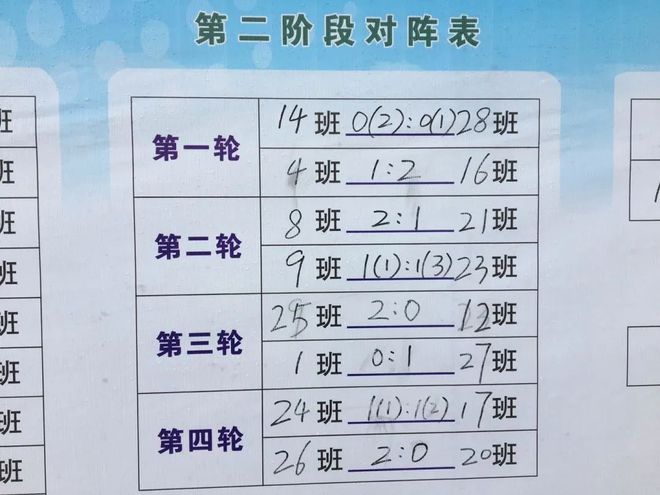 第二阶段对阵表
第一轮
14班 0(2):0(1) 28班
4班 1:2 16班
第二轮
8班 2:1 21班
9班 1(1):1(3) 23班
第三轮
25班 2:0 12班
1班 0:1 27班
第四轮
24班 1(1):1(2) 17班
26班 2:0 20班
班
班
班
班
班
班
班
班